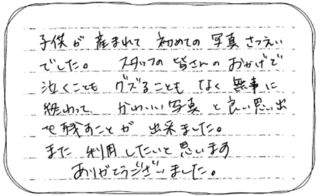 子供が産まれて初めての写真さつえい
でした。 スタッフの皆さんのおかげで
泣くことも グズることも なく 無事に
終わって、 かわいい写真 と 良い思い出
を残すことが 出来ました。
また 利用したいと思います
ありがとうございました。